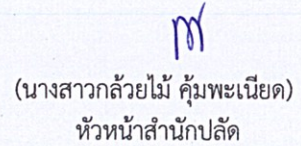 (นางสาวกล้วยไม้ คุ้มพะเนียด)
หัวหน้าสำนักปลัด